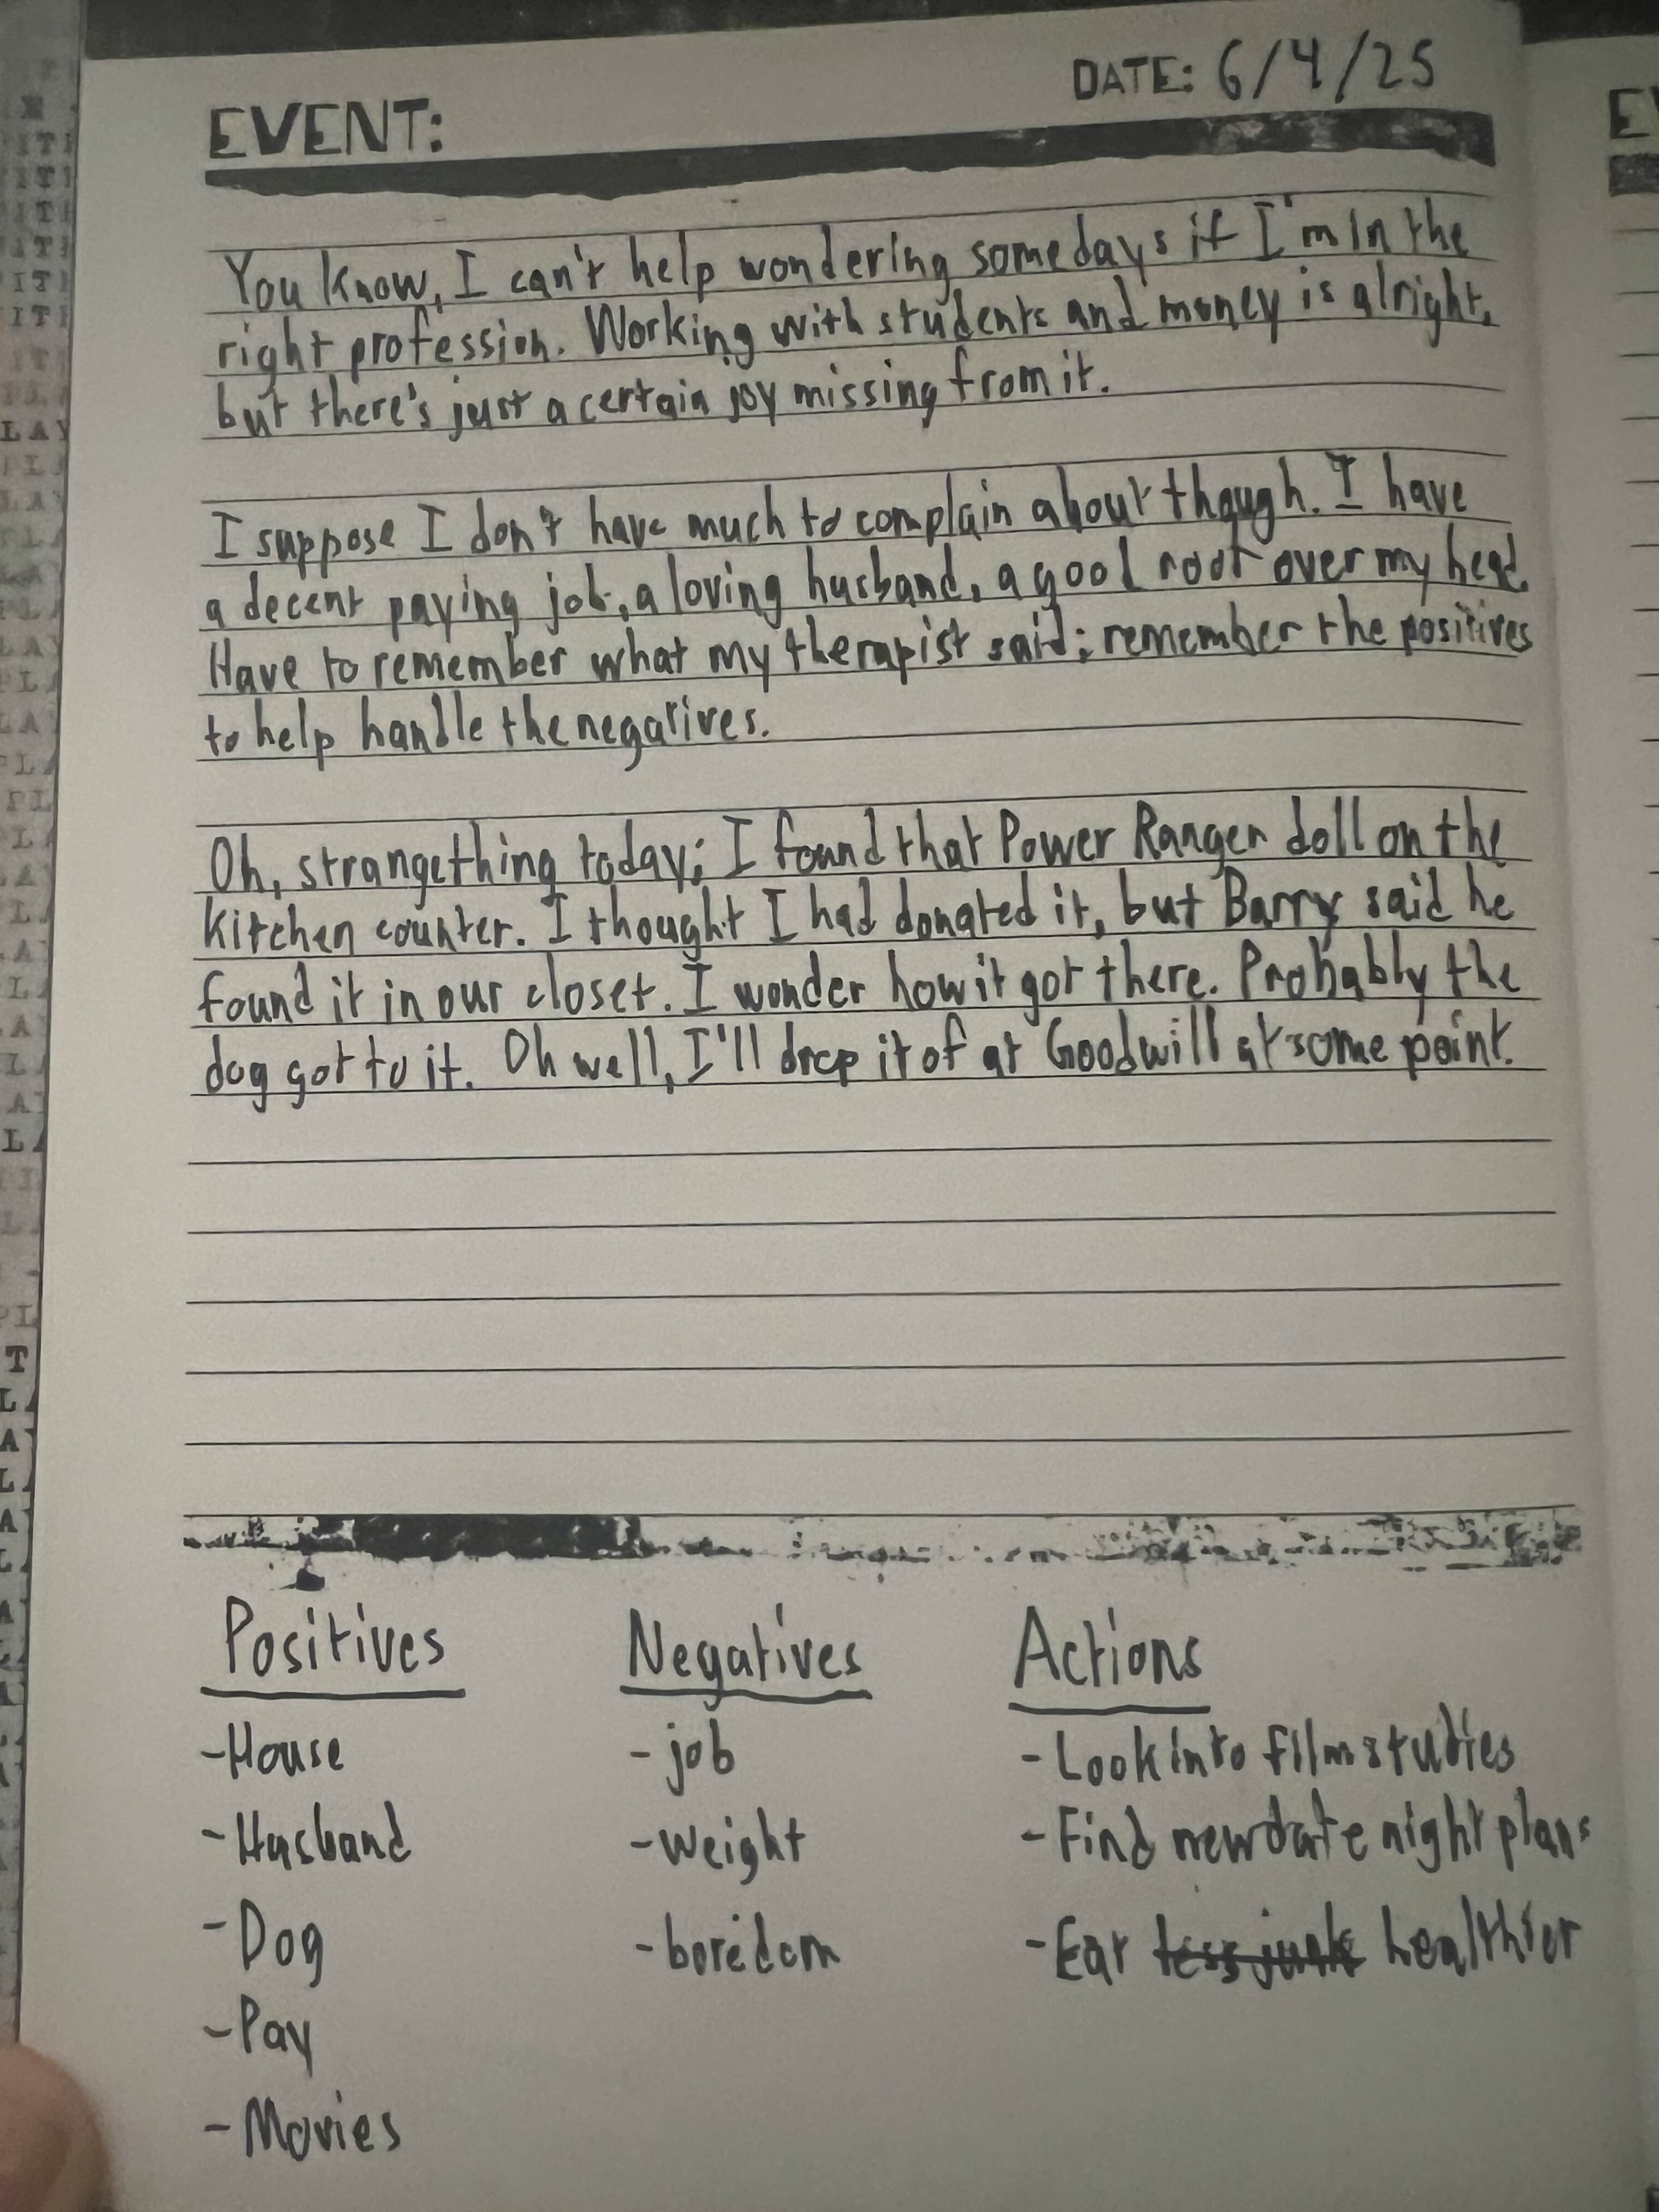 DATE: 6/4/25
EVENT:
You know, I can't help wondering somedays if I'm in the
right profession. Working with students and money is alright,
but there's just a certain joy missing from it.
I suppose I don't have much to complain about though. I have
a decent paying job, a loving husband, a good roof over my head.
Have to remember what my therapist said; remember the positives
to help handle the negatives.
Oh, strange thing today; I found that Power Ranger doll on the
kitchen counter. I thought I had donated it, but Barry said he
found it in our closet. I wonder how it got there. Probably the
dog got to it. Oh well, I'll drop it of at Goodwill at some point.
Positives
-House
-Husband
-Dog
-Pay
-Movies
Negatives
-job
-weight
-boredom
Actions
-Look into film studies
-Find new date night plans
-Eat less junk healthier